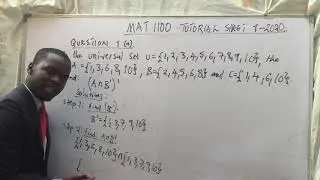 MAT 1100 TUTORIAL SHEET 1-2020.
QUESTION 1 (a)
the universal set U={1,2,3,4,5,6,7,8,9,10}, the
A={1,3,6,8,10}, B={2,4,5,6,8} and C={1,4,6,10}.
(A∩B')'
Solutions:
Step 1: find B'.
B'={1,3,7,9,10}
Step 2: find A∩B'
{1,3,6,8,10}∩{1,3,7,9,10}
{